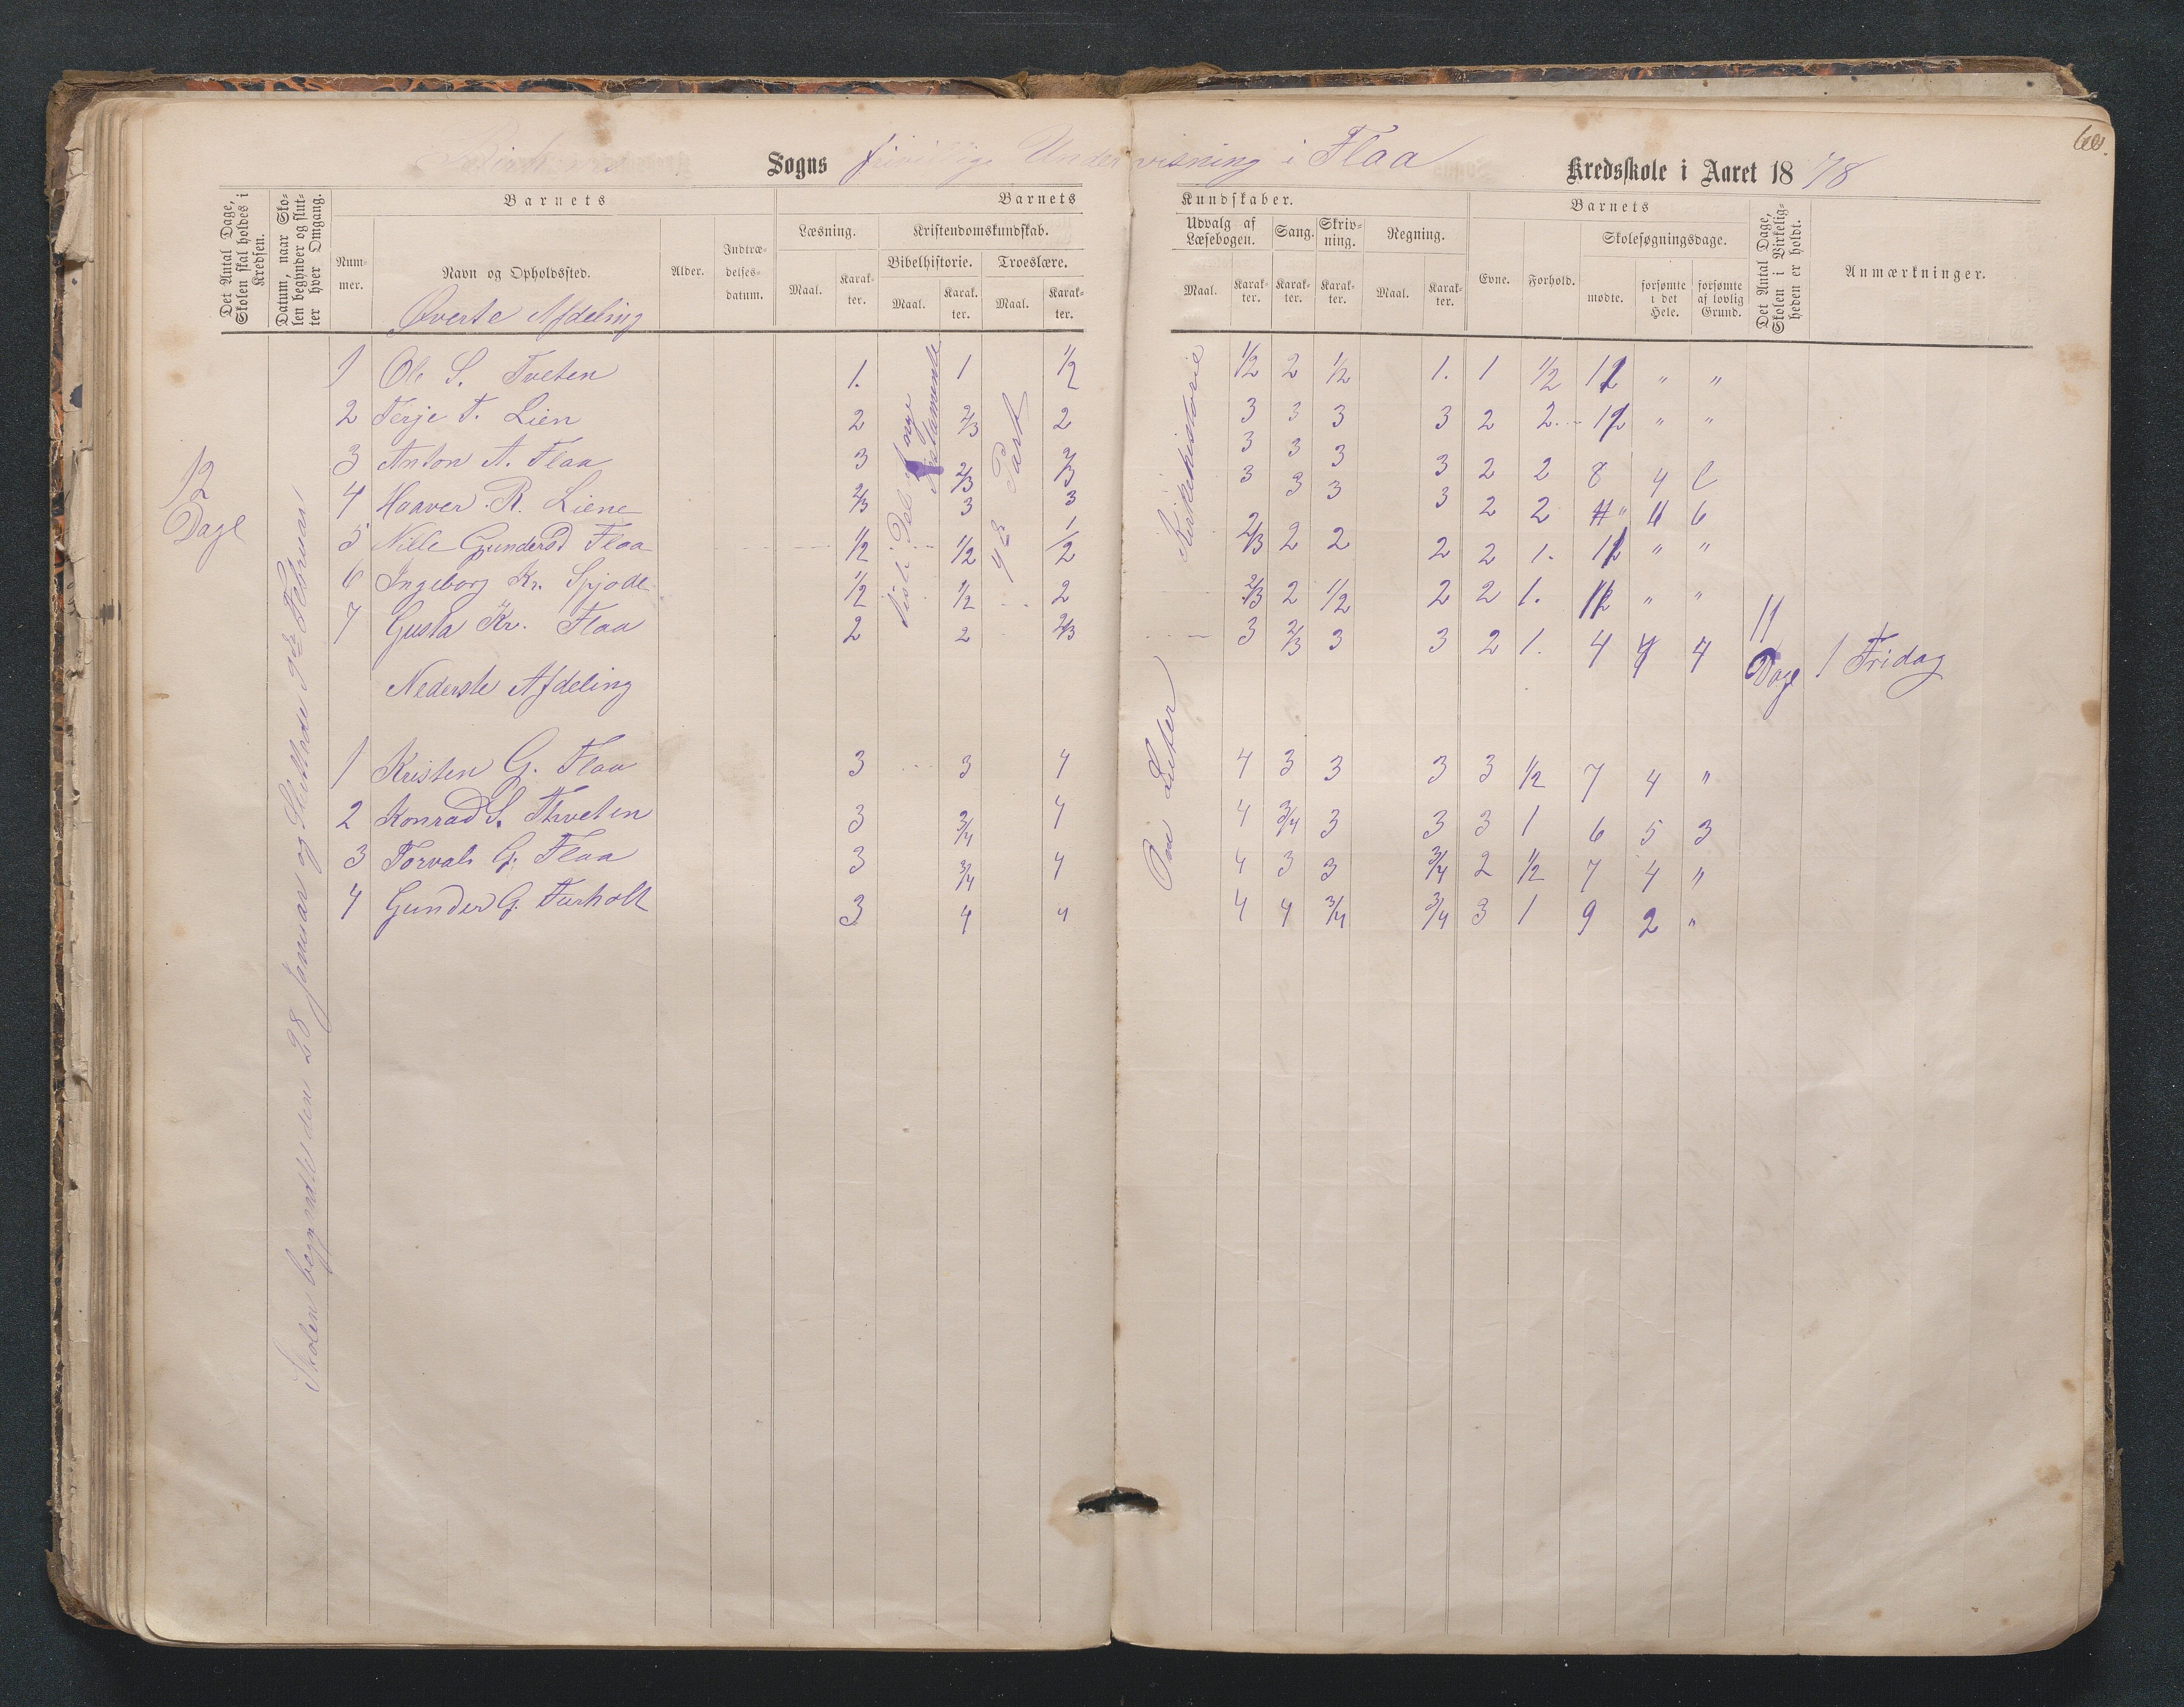 Birkenes Sogns frivillige Undervisning i Flaa Kredsskole i Aaret 1878
Det Antal Dage, Skolen skal holdes i Kredsen.
Datum, naar Skolen begynder og slutter hver Omgang.
Barnets
Nummer.
Navn og Opholdssted.
Alder.
Indtrædelsesdatum.
Barnets Kundskaber.
Læsning.
Maal.
Karakter.
Kristendomskundskab.
Bibelhistorie.
Maal.
Karakter.
Troeslære.
Maal.
Karakter.
Udvalg af Læsebogen.
Maal.
Karakter.
Sang.
Karakter.
Skrivning.
Karakter.
Regning.
Maal.
Karakter.
Barnets
Evne.
Forhold.
Skolesøgningsdage.
mødte.
forsømte i det Hele.
forsømte af lovlig Grund.
Det Antal Dage, Skolen i Virkeligheden er holdt.
Anmærkninger.
Øverste Afdeling
12 Dage
Skolen begyndte den 28 Januar og sluttede 9de Februar
1 Ole S. Tveten 1. 1 1/2 1/2 2 1/2 1. 1 1/2 12 " "
2 Terje T. Lien 2 2/3 2 3 3 3 3 2 2 12 " "
3 Anton A. Flaa 3 2/3 2/3 3 3 3 3 2 2 8 4
4 Haaver R. Liene 2/3 3 3 3 3 3 3 2 2 6
5 Nille Gundersd Flaa 1/2 1/2 1/2 2/3 2 2 2 2 1. 12 " "
6 Ingeborg Kr. Spjode 1/2 1/2 2 2/3 2 1/2 2 2 1. 12 " "
7 Gusta Kr. Flaa 2 2 2/3 3 2/3 3 3 2 1. 4 7 7
Testamente
4de Part
Kirkehistorie
Luter
11 Dage
1 Fridag
Nederste Afdeling
1 Kristen G. Flaa 3 3 4 4 3 3 3 3 1/2 7 4 "
2 Konrad S. Thveten 3 3/4 4 4 3/4 3 3 3 1 6 5 3
3 Torvald G. Flaa 3 3/4 4 4 3 3 3/4 2 1/2 7 4 "
4 Gunder G. Furholt 3 4 4 4 4 3/4 3/4 3 1 9 2 "